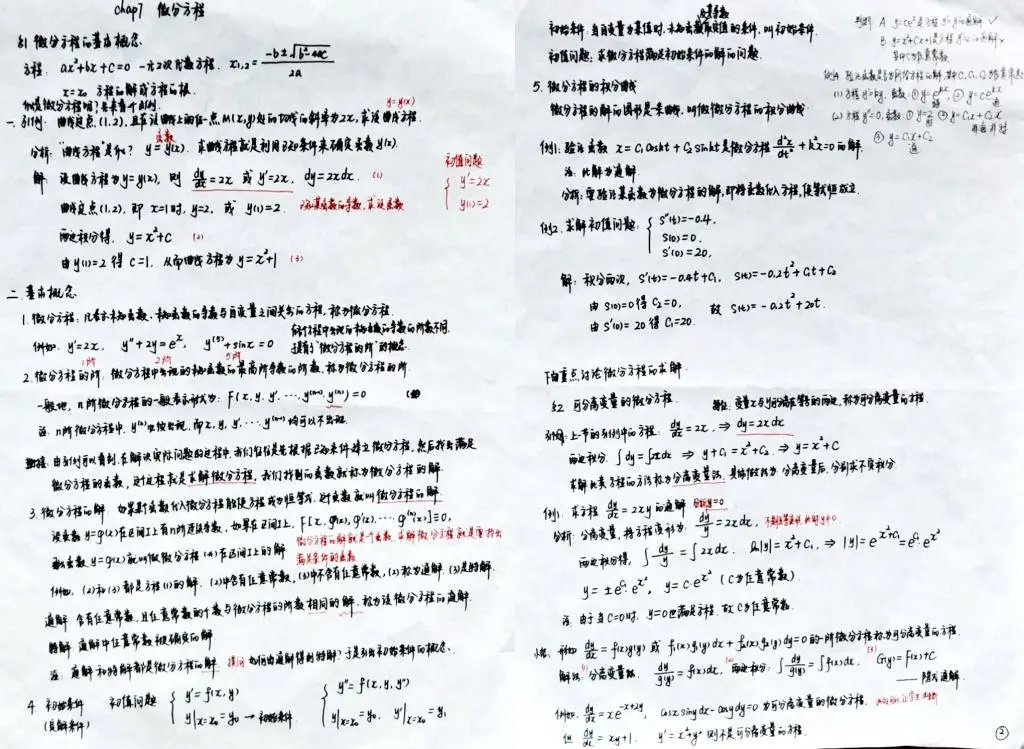 chap7 微分方程
§1 微分方程的基本概念.
方程: ax²+bx+c=0 一元2次代数方程. x₁,₂ = (-b±√(b²-4ac))/2a
x=x₀ 方程的解或方程的根.
y=y(x)
一. 引例. 曲线过点(1,2), 且在该曲线上的任一点M(x,y)处的切线的斜率为2x, 求该曲线方程.
函数
分析: "曲线方程"是什么? y=y(x). 求曲线方程就是利用已知条件来确定函数y(x).
解 设曲线方程为y=y(x), 则 dy/dx=2x 或 y'=2x, dy=2xdx. (1)
初值问题 { y'=2x y(1)=2
曲线过点(1,2), 即 x=1时, y=2, 或 y(1)=2.
两边积分得, y=x²+C (2)
由y(1)=2得 C=1. 从而曲线方程为 y=x²+1 (3)
二. 基本概念
1. 微分方程: 凡表示未知函数、未知函数的导数与自变量之间关系的方程, 称为微分方程.
例如. y'=2x, y''+2y=eˣ, y⁽⁵⁾+sinx=0
1阶 2阶 5阶
2. 微分方程的阶. 微分方程中出现的未知函数的最高阶导数的阶数, 称为微分方程的阶.
一般地, n阶微分方程的一般表示形式为: F(x,y,y',…,y⁽ⁿ⁻¹⁾,y⁽ⁿ⁾)=0
注: n阶微分方程中, y⁽ⁿ⁾必须出现, 而x,y,y',…,y⁽ⁿ⁻¹⁾均可以不出现.
由引例可以看到, 在解决实际问题的过程中, 我们往往是先根据已知条件建立微分方程, 然后找出满足
微分方程的函数, 这过程就是求解微分方程, 我们找到的函数就称为微分方程的解
3. 微分方程的解 如果某个函数代入微分方程能使方程成为恒等式, 这个函数就叫微分方程的解.
设函数y=φ(x)在区间I上有n阶连续导数, 如果在区间I上, F[x,φ(x),φ'(x),…φ⁽ⁿ⁾(x)]≡0,
微分方程的解就是一个函数, 求解微分方程就是要找出
满足条件的函数
则函数y=φ(x)就叫做微分方程(*)在区间I上的解
例如, (2)和(3)都是方程(1)的解. (2)中含有任意常数, (3)中不含有任意常数, (2)称为通解. (3)是特解.
通解 含有任意常数, 且任意常数的个数与微分方程的阶数相同的解, 称为该微分方程的通解.
特解 通解中任意常数被确定的解
注: 通解和特解都是微分方程的解. 提问 如何由通解得到特解? 于是引出初始条件的概念.
4. 初始条件 初值问题 { y'=f(x,y) y|x=x₀=y₀ → 初始条件 { y''=f(x,y,y') y|x=x₀=y₀, y'|x=x₀=y₁
(定解条件)
及其导数
初始条件: 当自变量为某值时, 未知函数取定值的条件, 叫初始条件.
初值问题: 求微分方程满足初始条件的解的问题.
判断: A y=ce²是方程 的通解 ✓
5. 微分方程的积分曲线
微分方程的解的图形是一条曲线, 叫做微分方程的积分曲线.
例1: 验证函数 x=C₁coskt+C₂sinkt是微分方程 d²x/dt²+k²x=0的解.
注: 此解为通解.
分析: 要验证某函数为微分方程的解, 即将函数代入方程, 使等式恒成立.
例2. 求解初值问题: { S''(t)=-0.4, S(0)=0, S'(0)=20,
解: 积分两次, S'(t)=-0.4t+C₁, S(t)=-0.2t²+C₁t+C₂
由 S(0)=0得 C₂=0,
由 S'(0)=20得 C₁=20.
故 S(t)=-0.2t²+20t.
下面重点讨论微分方程的求解.
§2 可分离变量的微分方程. 变量x与y可分离在等号的两边, 称为可分离变量的方程.
引例: 上节的引例中的方程: dy/dx=2x, ⇒ dy=2xdx
两边积分. ∫dy=∫2xdx ⇒ y+C₁=x²+C₂ ⇒ y=x²+C
求解此类方程的方法称为分离变量法. 具体做法为 分离变量后, 分别求不定积分.
例1: 求方程 dy/dx=2xy的通解
分析: 分离变量, 将方程变形为. dy/y=2xdx,
两边积分得, ∫dy/y=∫2xdx. ln|y|=x²+C₁, ⇒ |y|=e^(x²+C₁)=e^C₁·e^x²
y=±e^C₁·e^x², y=C·e^x² (C为任意常数).
注: 由于当C=0时, y=0也满足方程. 故C为任意常数.
小结: 形如 dy/dx=f(x)g(y) 或 f₁(x)g₁(y)dx+f₂(x)g₂(y)dy=0的一阶微分方程称为可分离变量的方程.
解法: (1)分离变量. dy/g(y)=f(x)dx, (2)两边积分: ∫dy/g(y)=∫f(x)dx. (3) G(y)=F(x)+C
—— 隐式通解
例如. dy/dx=xe^(-x+2y), cosxsinydx-cosydy=0为可分离变量的微分方程.
但 dy/dx=xy+1. y'=x²+y² 则不是可分离变量的方程.
②